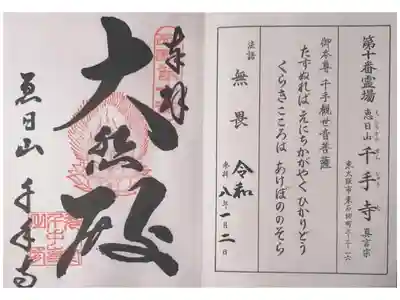 第十番霊場 恵日山 千手寺 真言宗
東大阪市東石切町三-三-一六
御本尊 千手観世音菩薩
たずぬれば えにちかがやく ひかりどう
くらきこころは あけぼののそら
法語 無畏
参拝 令和八年一月二日
奉拝
大悲殿
恵日山 千手寺